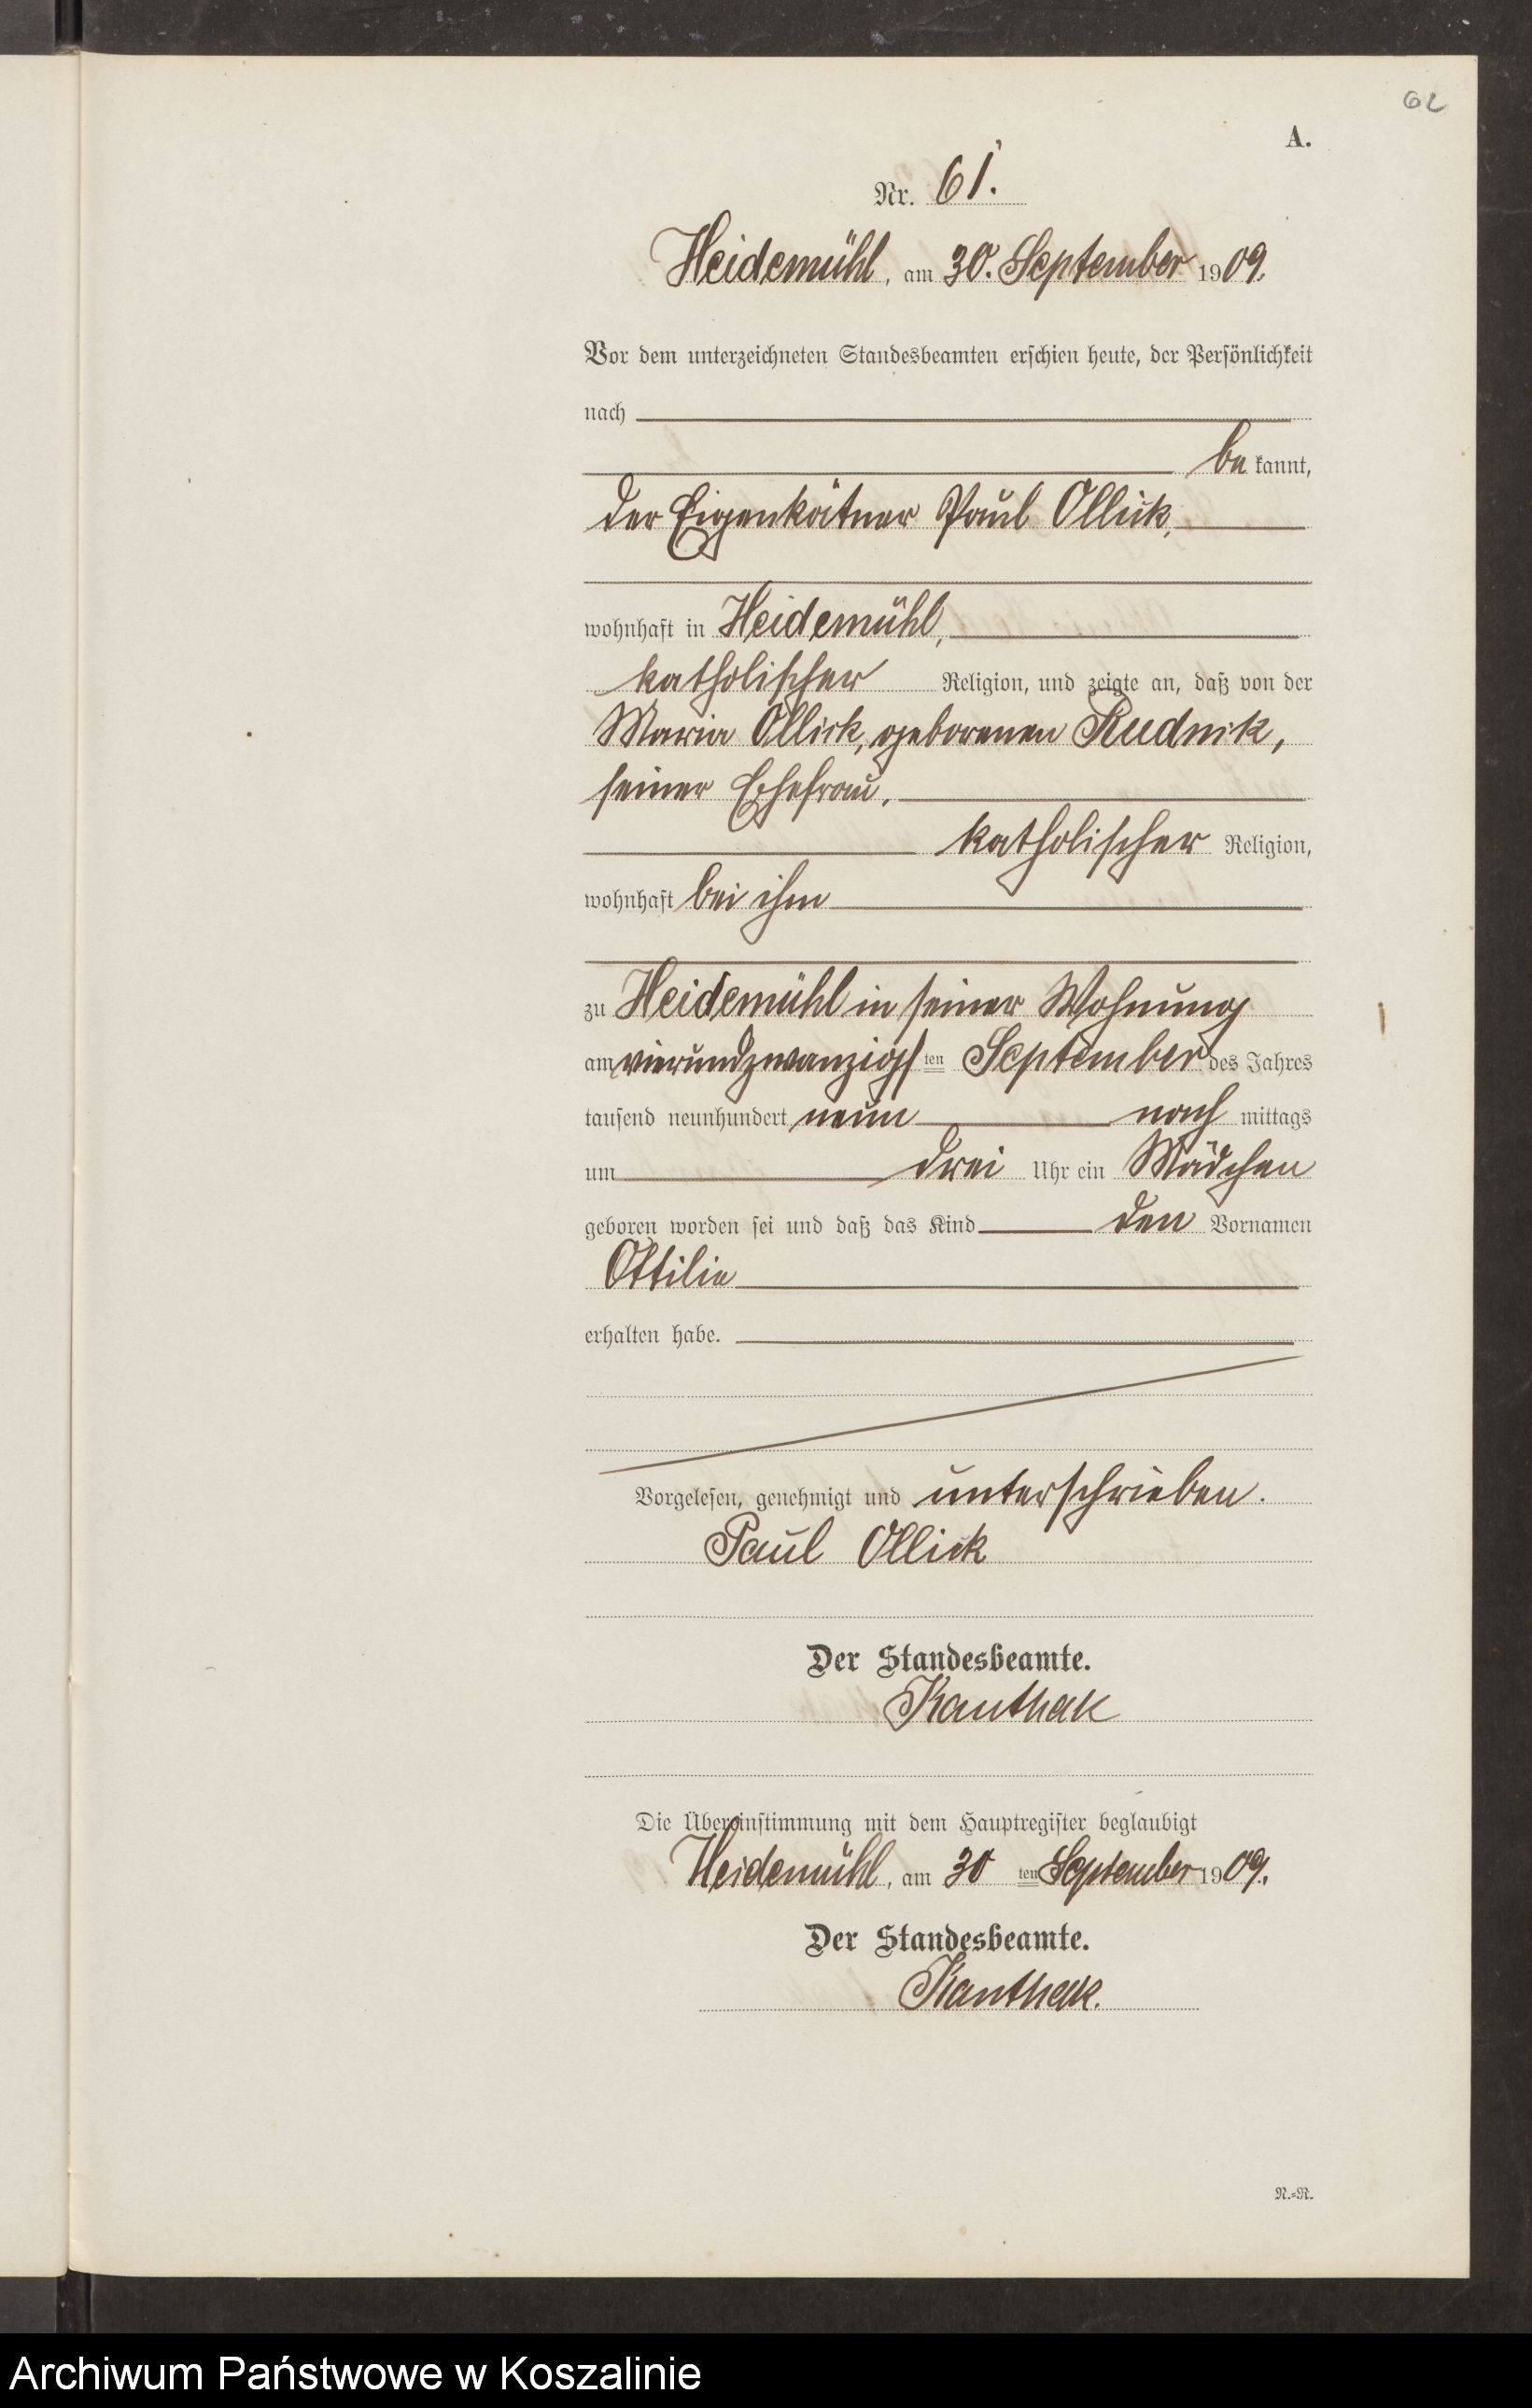 62
A.
Nr. 61.
Heidemühl, am 30. September 1909.
Vor dem unterzeichneten Standesbeamten erschien heute, der Persönlichkeit
nach
be kannt,
der Eigenkätner Paul Ollick,
wohnhaft in Heidemühl,
katholischer Religion, und zeigte an, daß von der
Maria Ollick, geborenen Rudnik,
seiner Ehefrau,
katholischer Religion,
wohnhaft bei ihm
zu Heidemühl in seiner Wohnung
am vierundzwanzigsten September des Jahres
tausend neunhundert neun nach mittags
um drei Uhr ein Mädchen
geboren worden sei und daß das Kind den Vornamen
Ottilie
erhalten habe.
Vorgelesen, genehmigt und unterschrieben.
Paul Ollick
Der Standesbeamte.
Kanthak
Die Übereinstimmung mit dem Hauptregister beglaubigt
Heidemühl, am 30 ten September 1909.
Der Standesbeamte.
Kanthak.
N.=R.
Archiwum Państwowe w Koszalinie